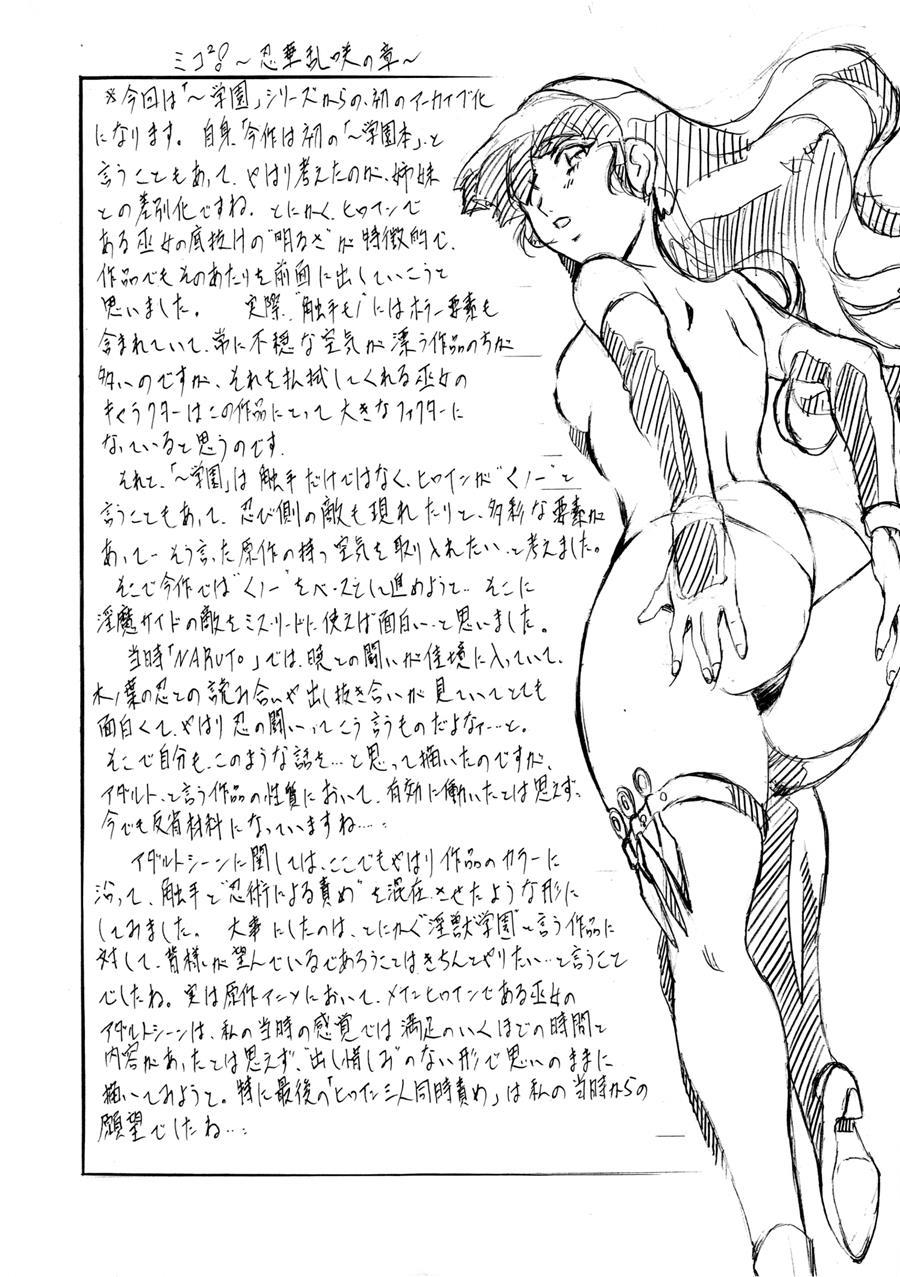 ミコ²！〜忍華乱咲の章〜
※今回は「〜学園」シリーズからの、初のアーカイブ化
になります。自身、今作は初の「〜学園本」と
言うこともあって、やはり考えたのが、姉妹
との差別化ですね。とにかく、ヒロインで
ある巫女の底抜けの"明るさ"が特徴的で、
作品でもそのあたりを前面に出していこうと
思いました。 実際、"触手モノ"にはホラー要素も
含まれていて、常に不穏な空気が漂う作品の方が
多いのですが、それを払拭してくれる巫女の
キャラクターはこの作品にとって大きなファクターに
なっていると思うのです。
それと、「〜学園」は触手だけではなく、ヒロインが"くノ一"と
言うこともあって、忍び側の敵も現れたりと、多彩な要素が
あって…そう言った原作の持つ空気を取り入れたい…と考えました。
そこで今作では"くノ一"をベースとして進めようと…そこに
淫魔サイドの敵をミスリードに使えば面白い…と思いました。
当時「NARUTO」では、暁との闘いが佳境に入っていて、
木ノ葉の忍との読み合いや出し抜き合いが見ていてとても
面白くて、やはり忍の闘いってこう言うものだよなァ…と。
そこで自分も、このような話を…と思って描いたのですが、
アダルト、と言う作品の性質において、有効に働いたとは思えず、
今でも反省材料になっていますね…。
アダルトシーンに関しては、ここでもやはり作品のカラーに
沿って、触手と"忍術による責め"を混在させたような形に
してみました。 大事にしたのは、とにかく"淫獣学園"と言う作品に
対して、皆様が望んでいるであろうことはきちんとやりたい…と言うこと
でしたね。実は原作アニメにおいて、メインヒロインである巫女の
アダルトシーンは、私の当時の感覚では満足のいくほどの時間と
内容があったとは思えず、"出し惜しみ"のない形で思いのままに
描いてみようと。特に最後の「ヒロイン三人同時責め」は私の当時からの
願望でしたね…。